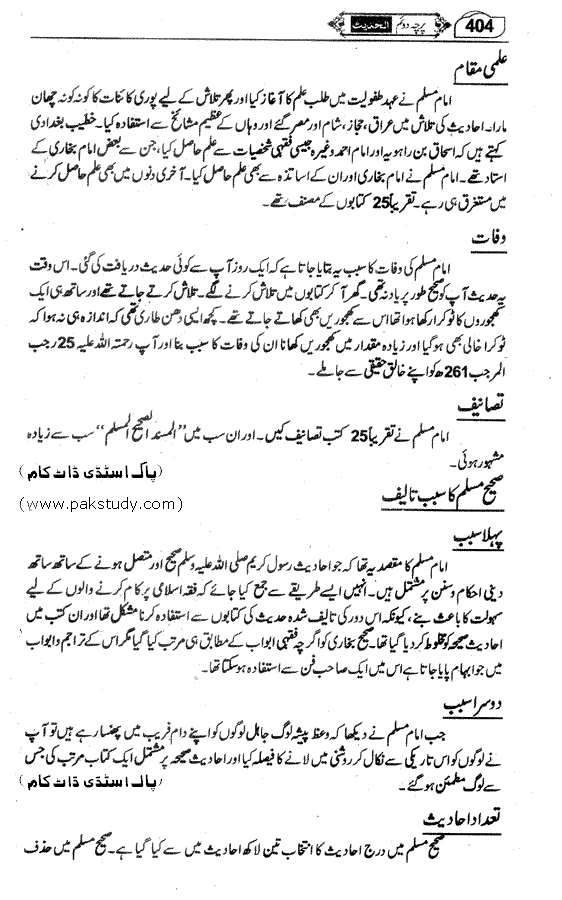 404 الحدیث پرچہ دوئم
علمی مقام
امام مسلم نے عہد طفولیت میں طلب علم کا آغاز کیا اور پھر تلاش کے لیے پوری کائنات کا کونہ کونہ چھان
مارا۔ احادیث کی تلاش میں عراق، حجاز، شام اور مصر گئے اور وہاں کے عظیم مشائخ سے استفادہ کیا۔ خطیب بغدادی
کہتے ہیں کہ اسحاق بن راہویہ اور امام احمد وغیرہ جیسی فقہی شخصیات سے علم حاصل کیا، جن سے بعض امام بخاری کے
استاد تھے۔ امام مسلم نے امام بخاری اور ان کے اساتذہ سے بھی علم حاصل کیا۔ آخری دنوں میں بھی علم حاصل کرنے
میں مستغرق ہی رہے۔ تقریباً 25 کتابوں کے مصنف تھے۔
وفات
امام مسلم کی وفات کا سبب یہ بتایا جاتا ہے کہ ایک روز آپ سے کوئی حدیث دریافت کی گئی۔ اس وقت
یہ حدیث آپ کو صحیح طور پر یاد نہ تھی۔ گھر آ کر کتابوں میں تلاش کرنے لگے۔ تلاش کرتے جاتے تھے اور ساتھ ہی ایک
کھجوروں کا ٹوکرا رکھا ہوا تھا اس سے کھجوریں بھی کھاتے جاتے تھے۔ کچھ ایسی دھن طاری تھی کہ اندازہ ہی نہ ہوا کہ
ٹوکرا خالی بھی ہو گیا اور زیادہ مقدار میں کھجوریں کھانا ان کی وفات کا سبب بنا اور آپ رحمتہ اللہ علیہ 25 رجب
المرجب 261ھ کو اپنے خالق حقیقی سے جا ملے۔
تصانیف
امام مسلم نے تقریباً 25 کتب تصانیف کیں۔ اور ان سب میں "المسند الصحیح المسلم" سب سے زیادہ
مشہور ہوئی۔
(پاک اسٹڈی ڈاٹ کام)
صحیح مسلم کا سبب تالیف
(www.pakstudy.com)
پہلا سبب
امام مسلم کا مقصد یہ تھا کہ جو احادیث رسول کریم صلی اللہ علیہ وسلم صحیح اور متصل ہونے کے ساتھ ساتھ
دینی احکام و سنن پر مشتمل ہیں۔ انہیں ایسے طریقے سے جمع کیا جائے کہ فقہ اسلامی پر کام کرنے والوں کے لیے
سہولت کا باعث بنے، کیونکہ اس دور کی تالیف شدہ حدیث کی کتابوں سے استفادہ کرنا مشکل تھا اور ان کتب میں
احادیث صحیحہ کو مخلوط کر دیا گیا تھا۔ صحیح بخاری کو اگرچہ فقہی ابواب کے مطابق ہی مرتب کیا گیا مگر اس کے تراجم و ابواب
میں جو ابہام پایا جاتا ہے اس میں ایک صاحب فن سے استفادہ ہو سکتا تھا۔
دوسرا سبب
جب امام مسلم نے دیکھا کہ وعظ پیشہ لوگ جاہل لوگوں کو اپنے دام فریب میں پھنسا رہے ہیں تو آپ
نے لوگوں کو اس تاریکی سے نکال کر روشنی میں لانے کا فیصلہ کیا اور احادیث صحیحہ پر مشتمل ایک کتاب مرتب کی جس
سے لوگ مطمئن ہو گئے۔
(پاک اسٹڈی ڈاٹ کام)
تعداد احادیث
صحیح مسلم میں درج احادیث کا انتخاب تین لاکھ احادیث میں سے کیا گیا ہے۔ صحیح مسلم میں حذف